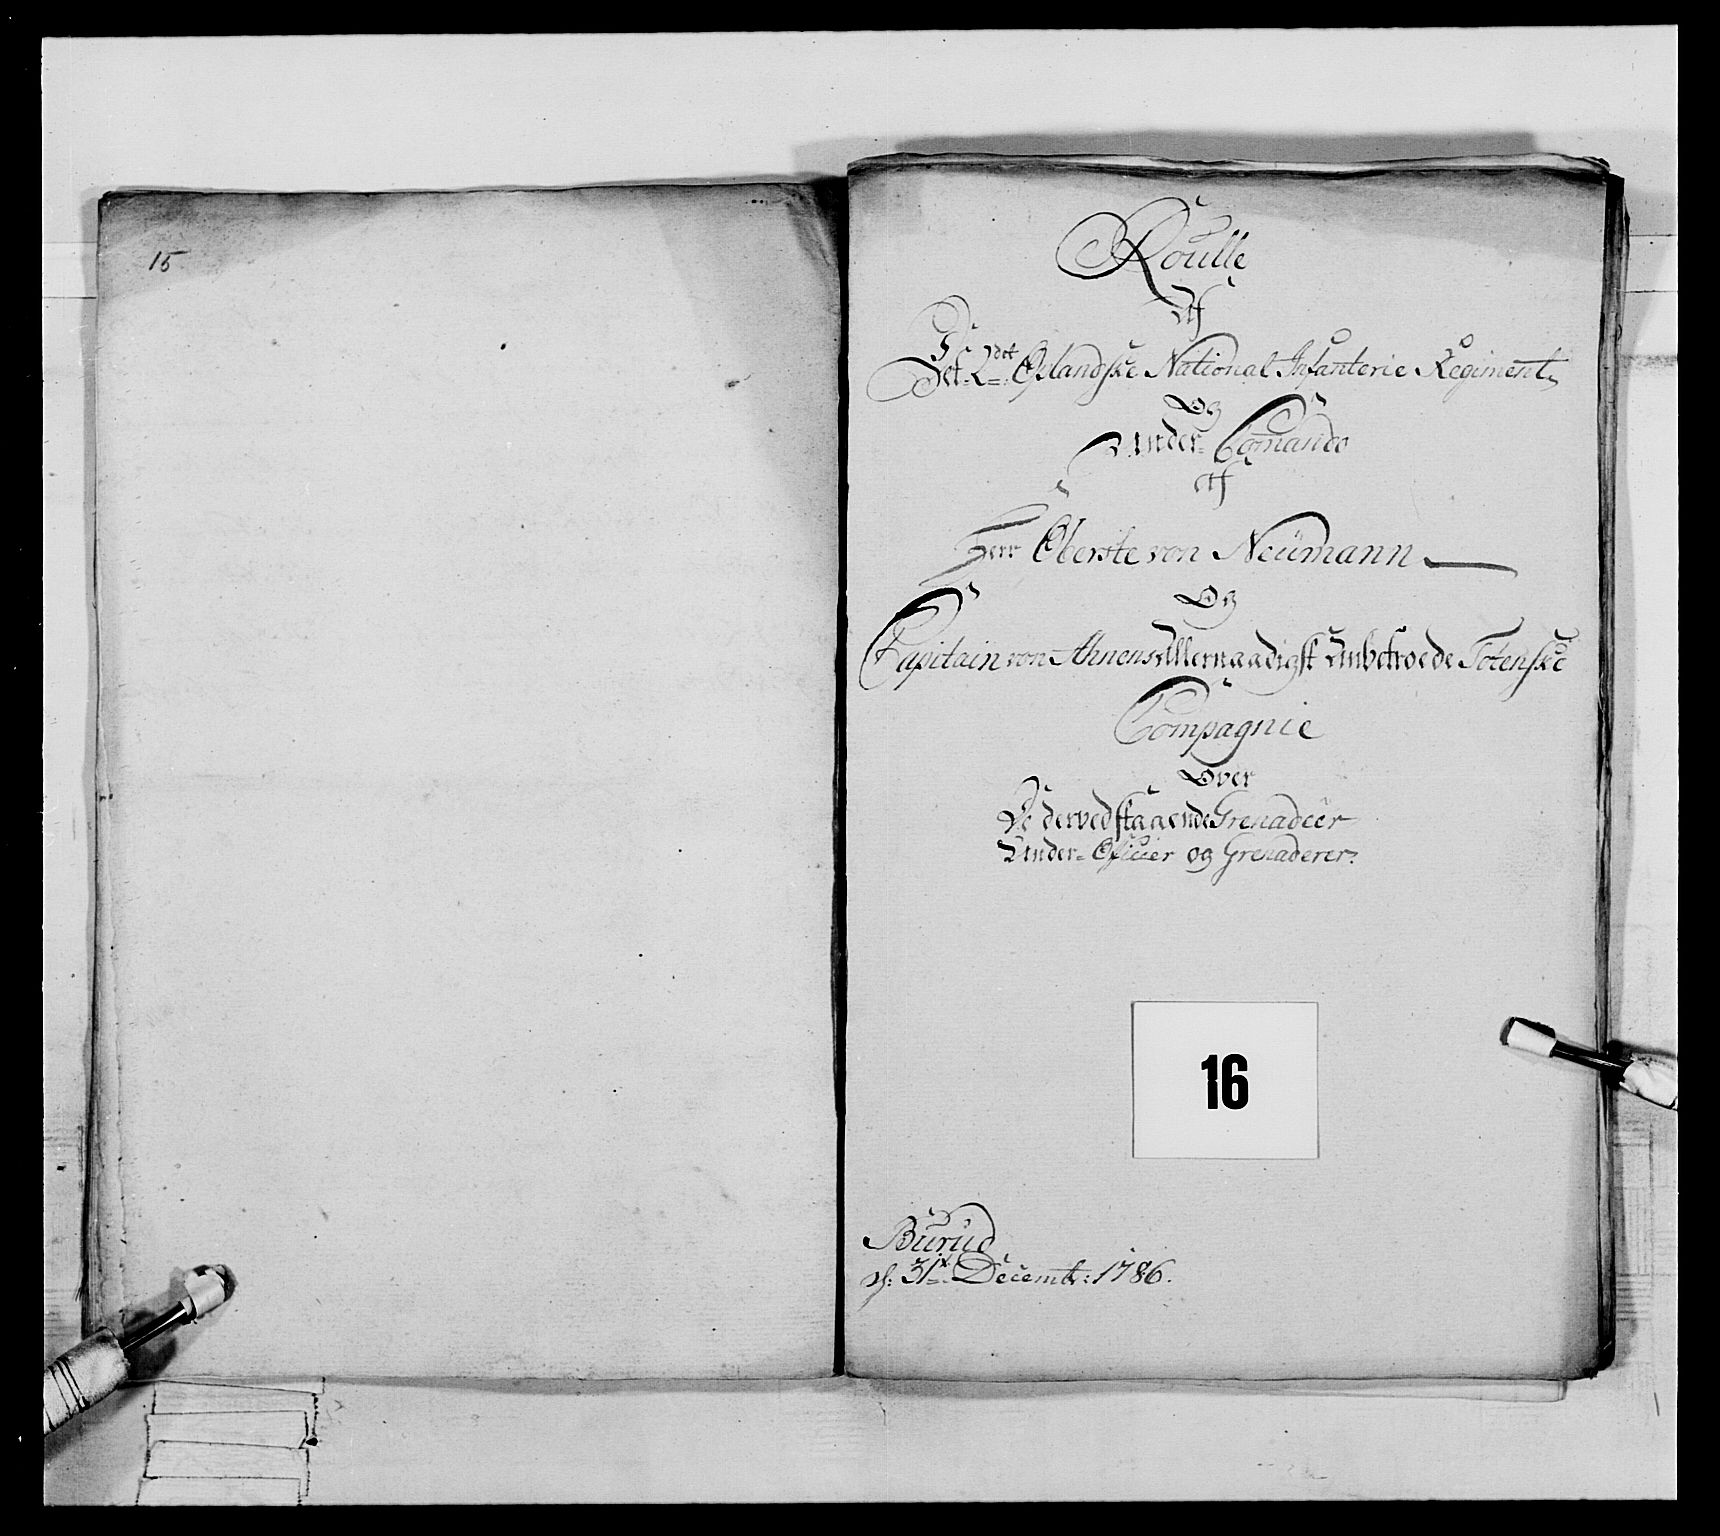 15
Roulle
Af
Det 2det Oplandske National Infanterie Regiment
Og
Under Comando
af
Herr Oberste von Neumann
Og
Capitain von Ahnens Allernaadigst Anbetroede Totenske
Compagnie
Over
De derved staaende Grenadeer
Under-Officier og Grenaderer.
16
Burud
d: 31te Decembr: 1786.